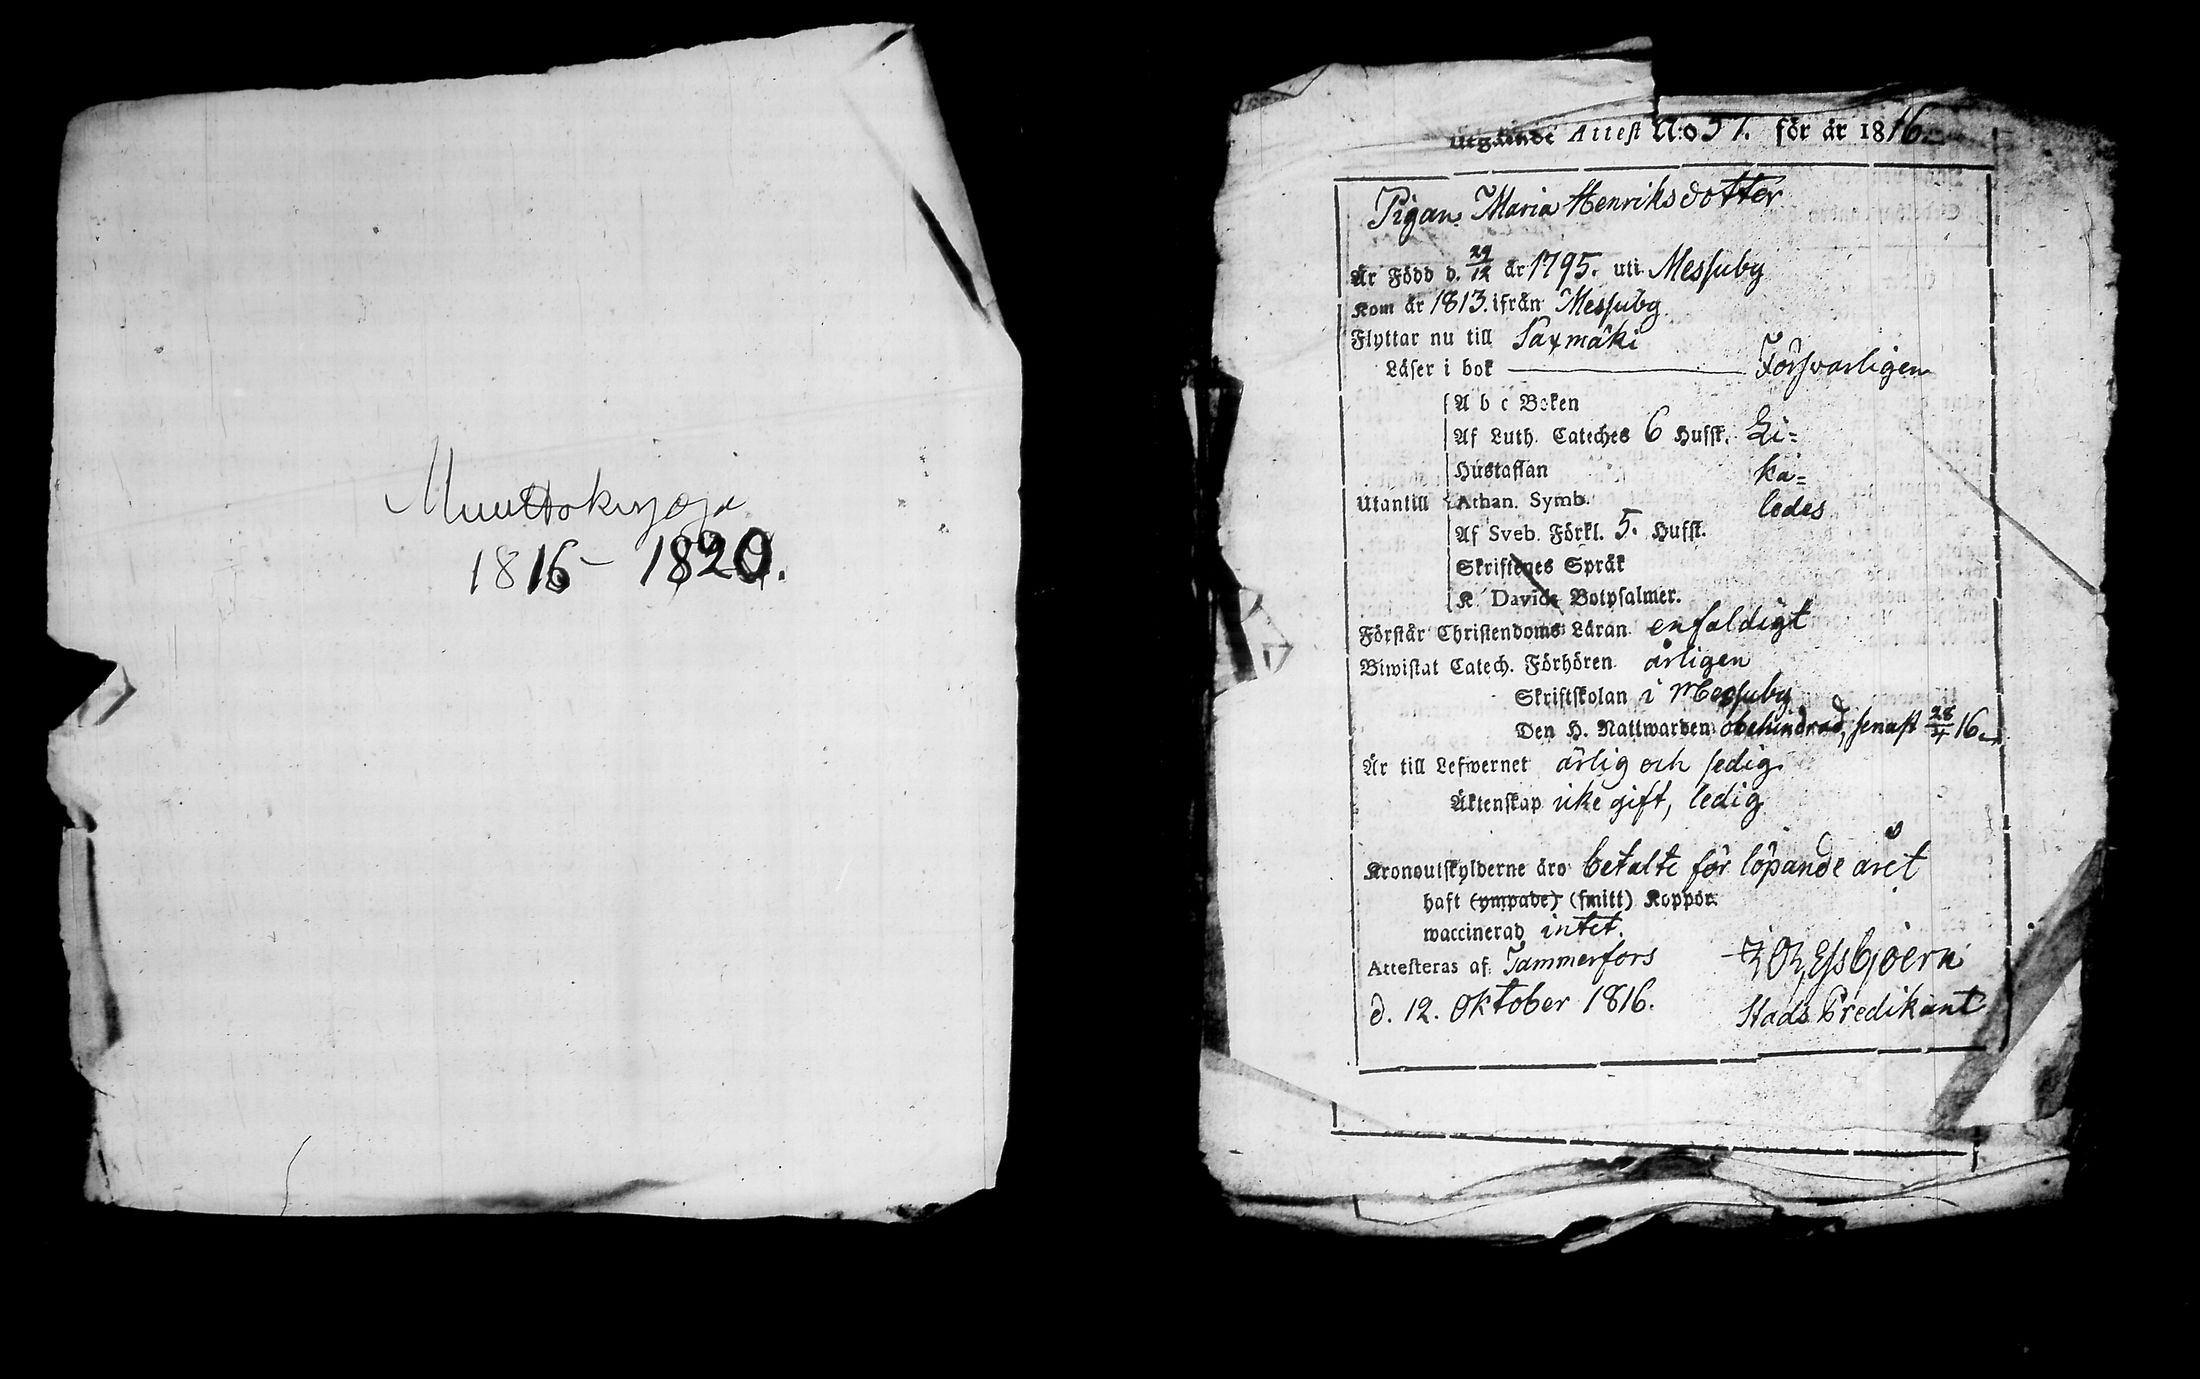 Muuttokirjoja
1816 - 1820.
Utgående Attest N:o 51. för år 1816.
Pigan Maria Henriksdotter
Är Född d. 29/12 år 1795. uti Messuby
Kom år 1813. ifrån Messuby
Flyttar nu till Saxmäki
Läser i bok Försvarligen
A b c Boken
Af Luth. Cateches 6 Husst. Li=
Hustaflan ka=
Utantill Athan. Symb. ledes
Af Sveb. Förkl. 5. Husst.
Skriftenes Språk
K. Davids Botpsalmer.
Förstår Christendoms Läran enfaldigt
Biwistat Catech. Förhören årligen
Skriftskolan i Messuby
Den H. Nattwarden obehindrad, senast 28/4 16.
Är till Lefwernet ärlig och sedig
Äktenskap icke gift, ledig
Kronoutskylderne äro betalte för löpande året
haft (ympade) (smitt) Koppor.
waccinerad intet.
Attesteras af Tammerfors Essbjoern
d. 12. Oktober 1816. Stads Predikant